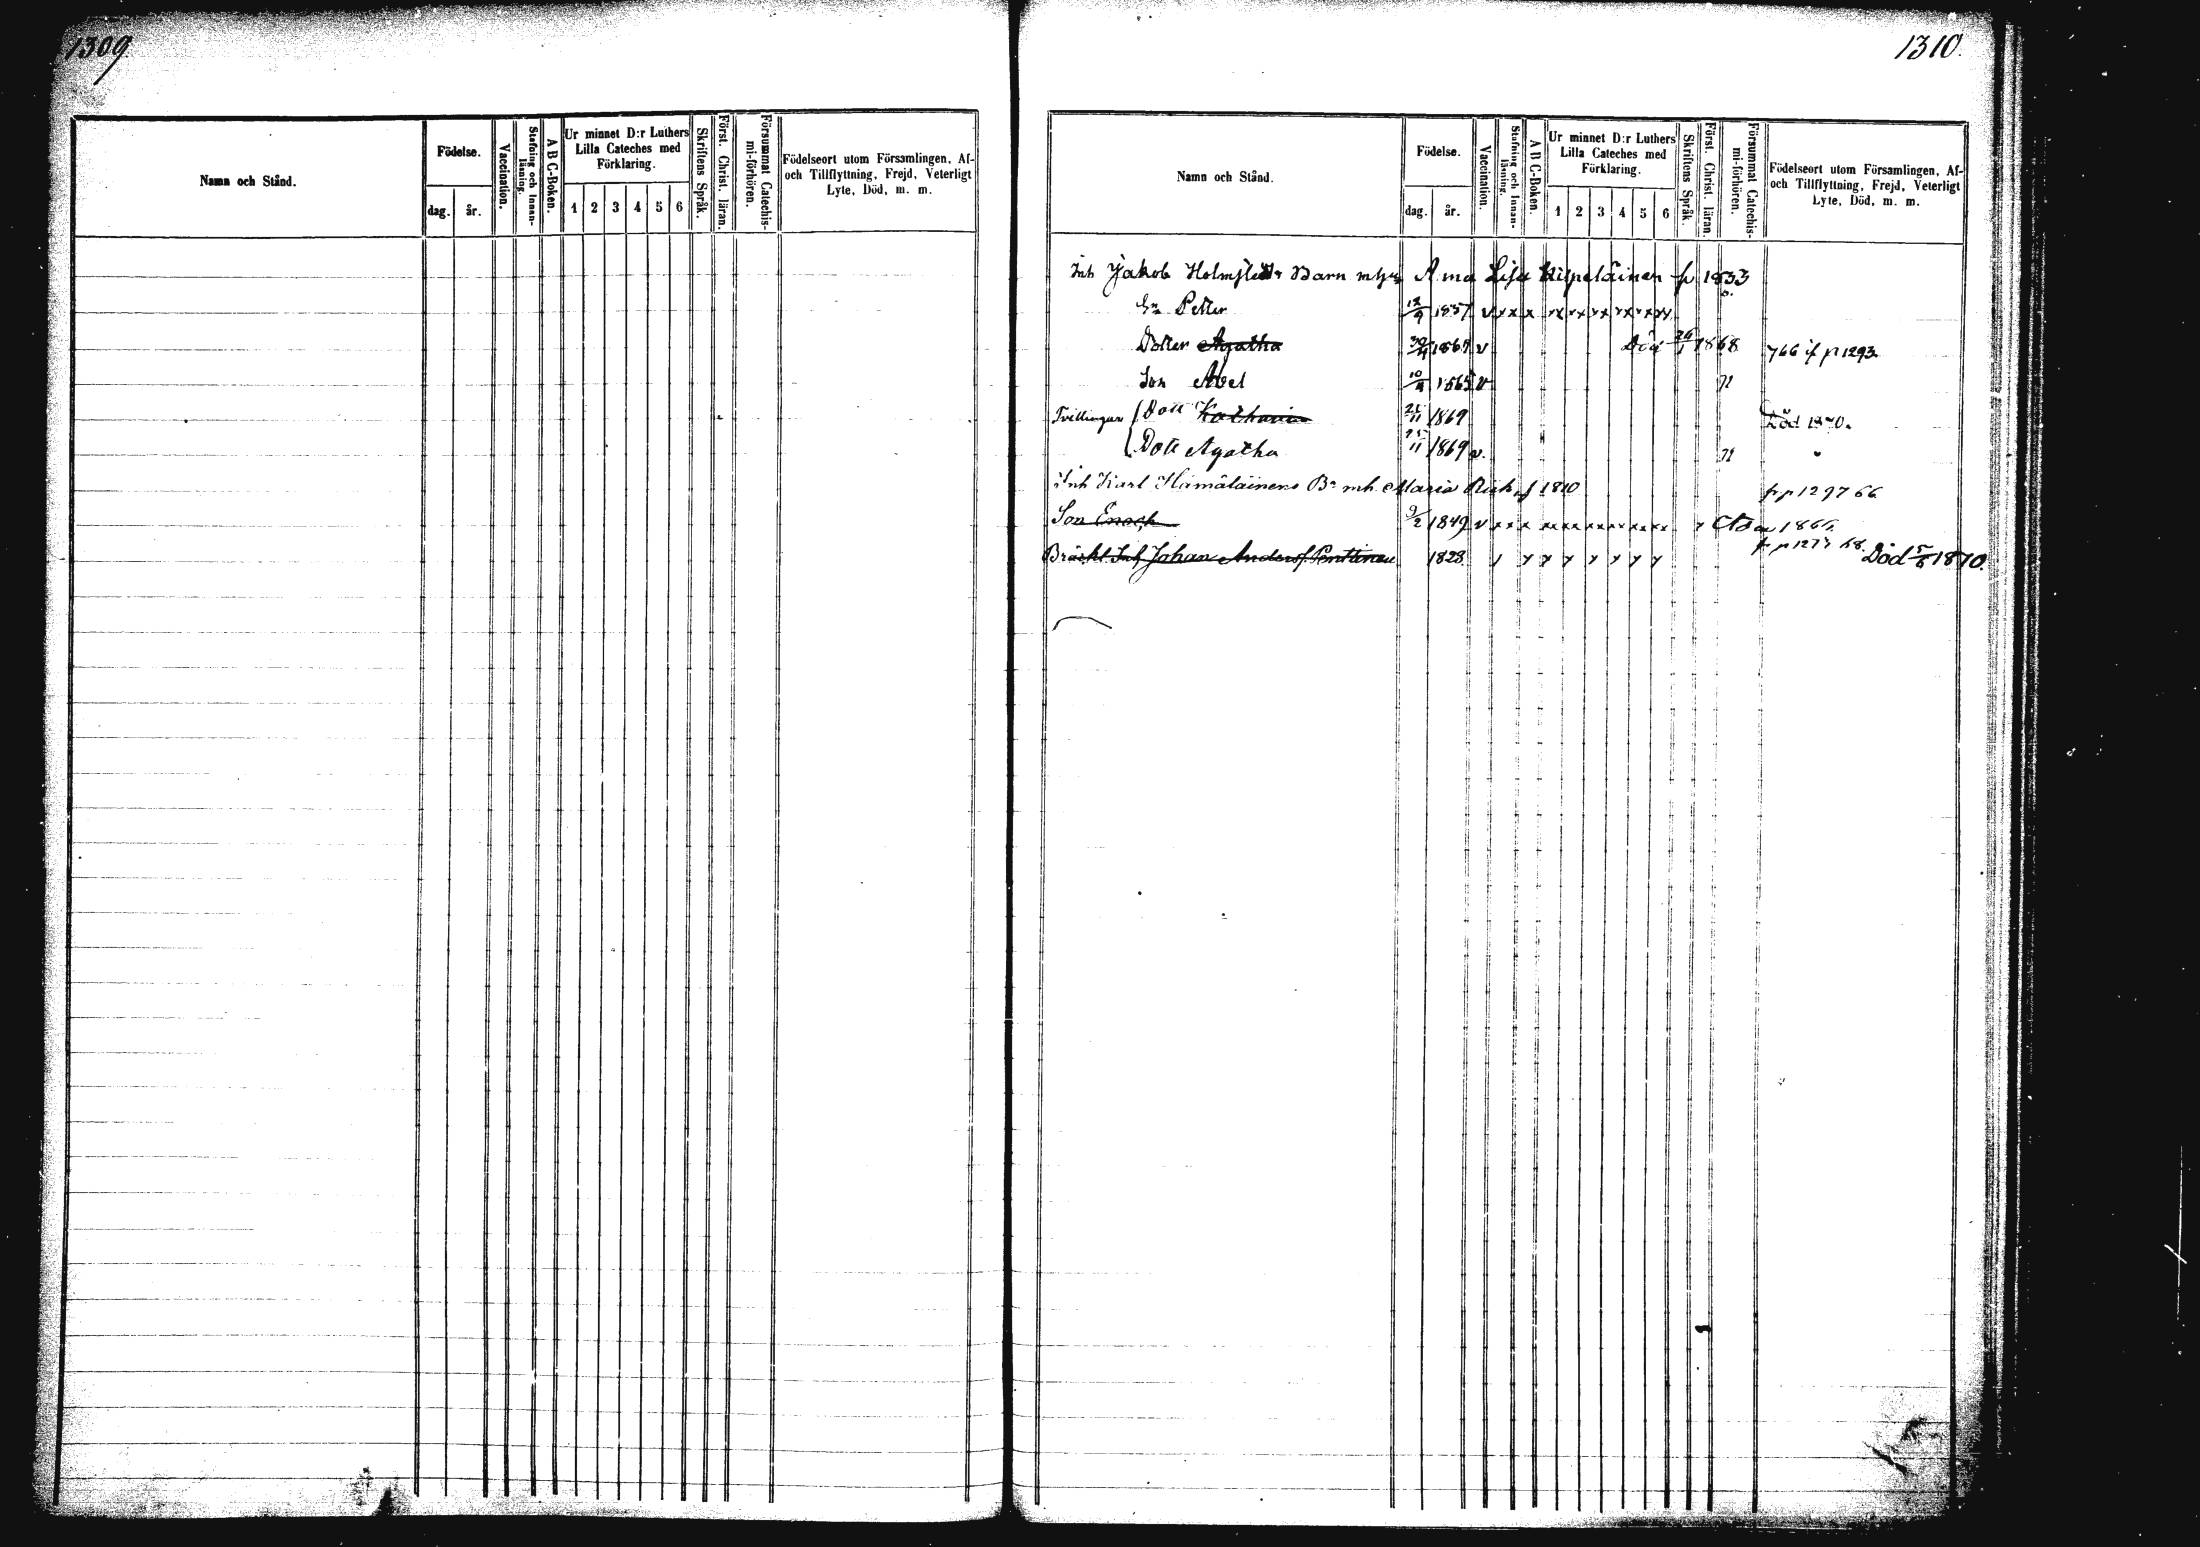 1309
Namn och Stånd.
Födelse.
dag. år.
Vaccination.
Stafning och Innan-
läsning.
A B C-Boken.
Ur minnet D:r Luthers
Lilla Cateches med
Förklaring.
1 2 3 4 5 6
Skriftens Språk.
Först. Christ. läran.
Försummat Catechis-
mi-förhören.
Födelseort utom Församlingen, Af-
och Tillflyttning, Frejd, Veterligt
Lyte, Död, m. m.
1310.
Namn och Stånd.
Födelse.
dag. år.
Vaccination.
Stafning och Innan-
läsning.
A B C-Boken.
Ur minnet D:r Luthers
Lilla Cateches med
Förklaring.
1 2 3 4 5 6
Skriftens Språk.
Först. Christ. läran.
Försummat Catechis-
mi-förhören.
Födelseort utom Församlingen, Af-
och Tillflyttning, Frejd, Veterligt
Lyte, Död, m. m.
Inh Jakob Barn Anna Lisa Kilpeläinen f 1833
Sn Petter 12/9 1857 v x x x xx xx xx xx xx xx
Dotter Agatha v Död 26/1 1868 p 1293
Son Abel 10/4 1865 v n
Tvillingar Dott Katharina 25/11 1869 Död 1870.
Dott Agatha 25/11 1869 v. n
Inh Karl Hämäläinens Bn mh Maria f 1810 fr p 1297 66
Son Enoch 9/2 1849 v x x x xx xx xx xx xx xx
Inh Johan Andersf. Penttinen 1828 fr p 68. Död 5/6 1870.